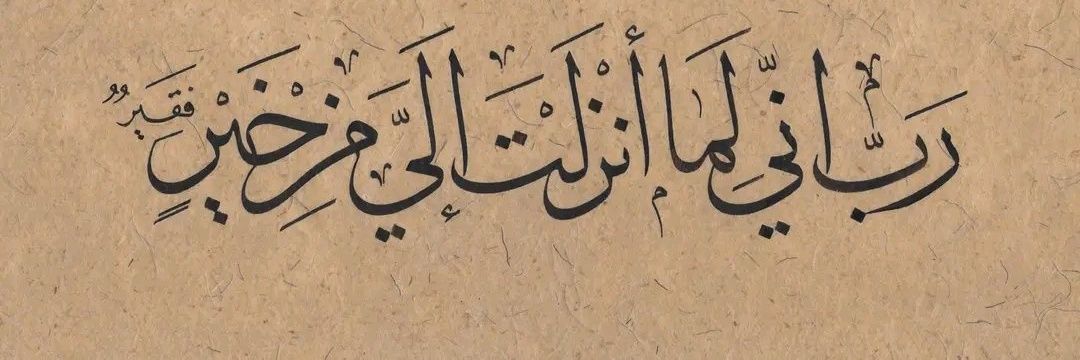 رَبِّ اِنّي لِمَا أَنْزَلْتَ إِلَيَّ مِنْ خَيْرٍ فَقَيرٌ